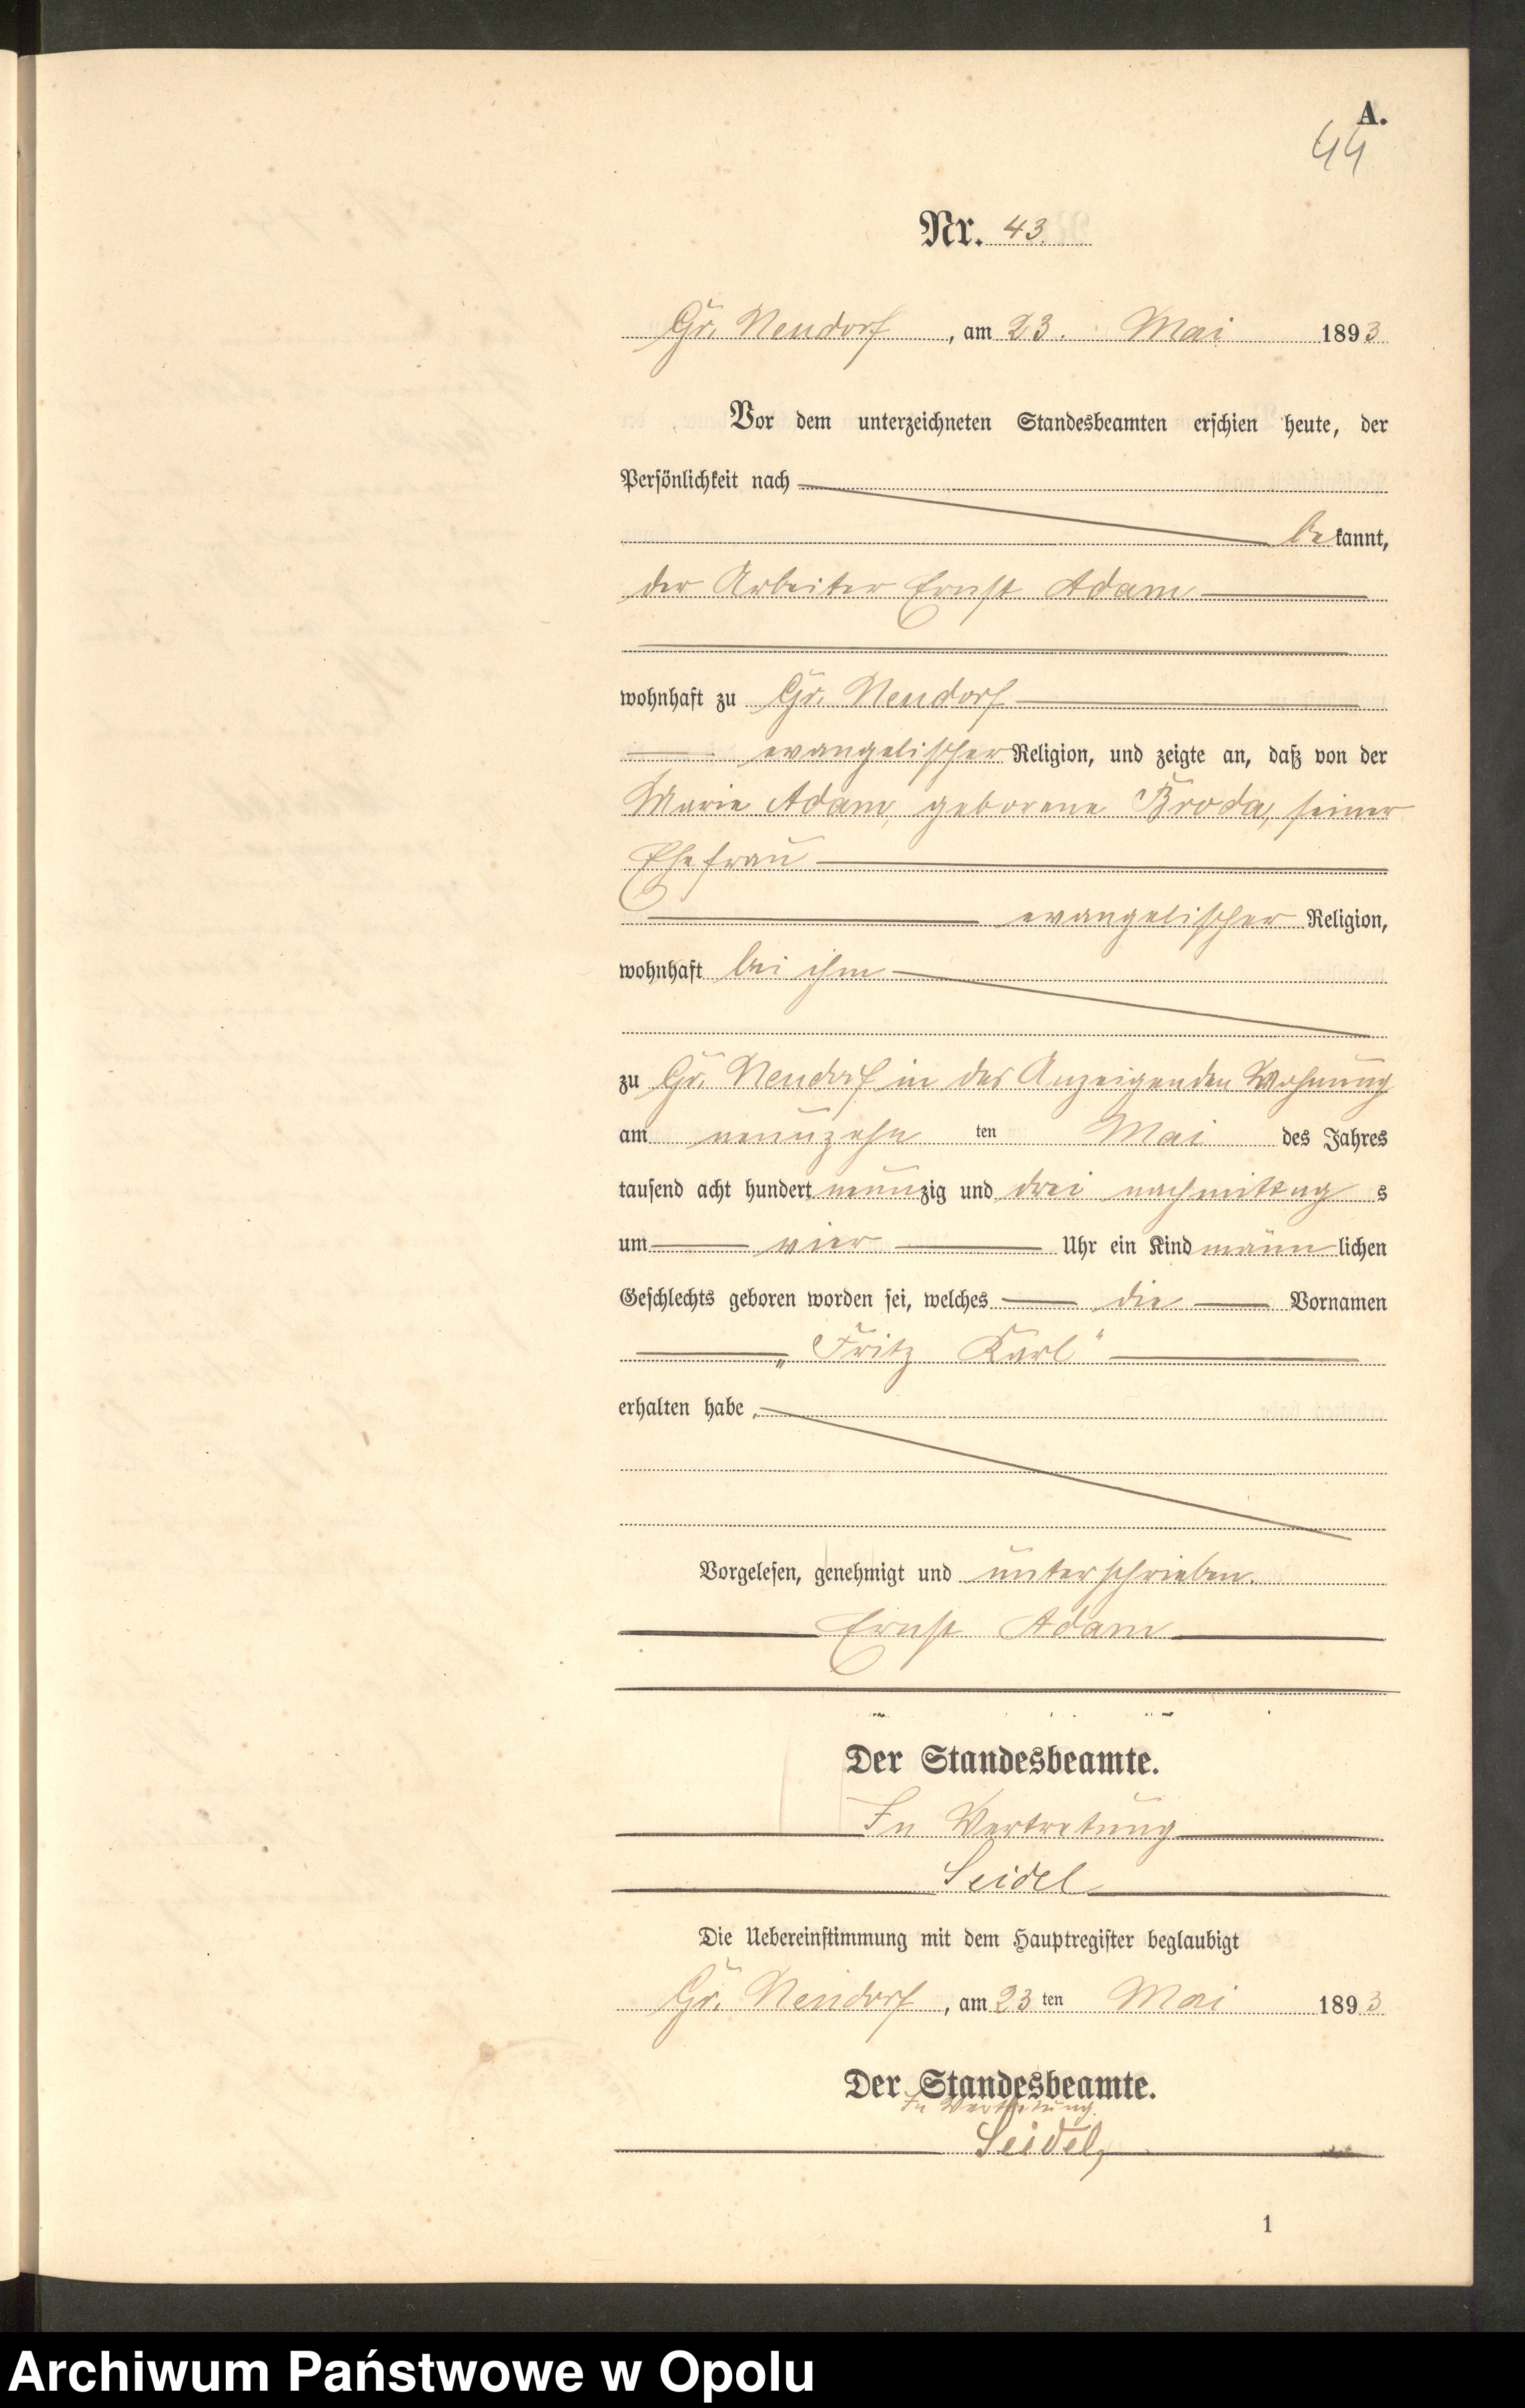 A.
44
Nr. 43.
Gr. Neudorf, am 23. Mai 1893
Vor dem unterzeichneten Standesbeamten erschien heute, der
Persönlichkeit nach
bekannt,
der Arbeiter Ernst Adam
wohnhaft zu Gr. Neudorf
evangelischer Religion, und zeigte an, daß von der
Marie Adam, geborene Broda, seiner
Ehefrau
evangelischer Religion,
wohnhaft bei ihm
zu Gr. Neudorf in des Anzeigenden Wohnung
am neunzehn ten Mai des Jahres
tausend acht hundert neunzig und drei nachmittag s
um vier Uhr ein Kind männlichen
Geschlechts geboren worden sei, welches die Vornamen
„Fritz Karl“
erhalten habe.
Vorgelesen, genehmigt und unterschrieben.
Ernst Adam
Der Standesbeamte.
In Vertretung
Seidel
Die Uebereinstimmung mit dem Hauptregister beglaubigt
Gr. Neudorf, am 23 ten Mai 1893
Der Standesbeamte.
In Vertretung.
Seidel
1
Archiwum Państwowe w Opolu